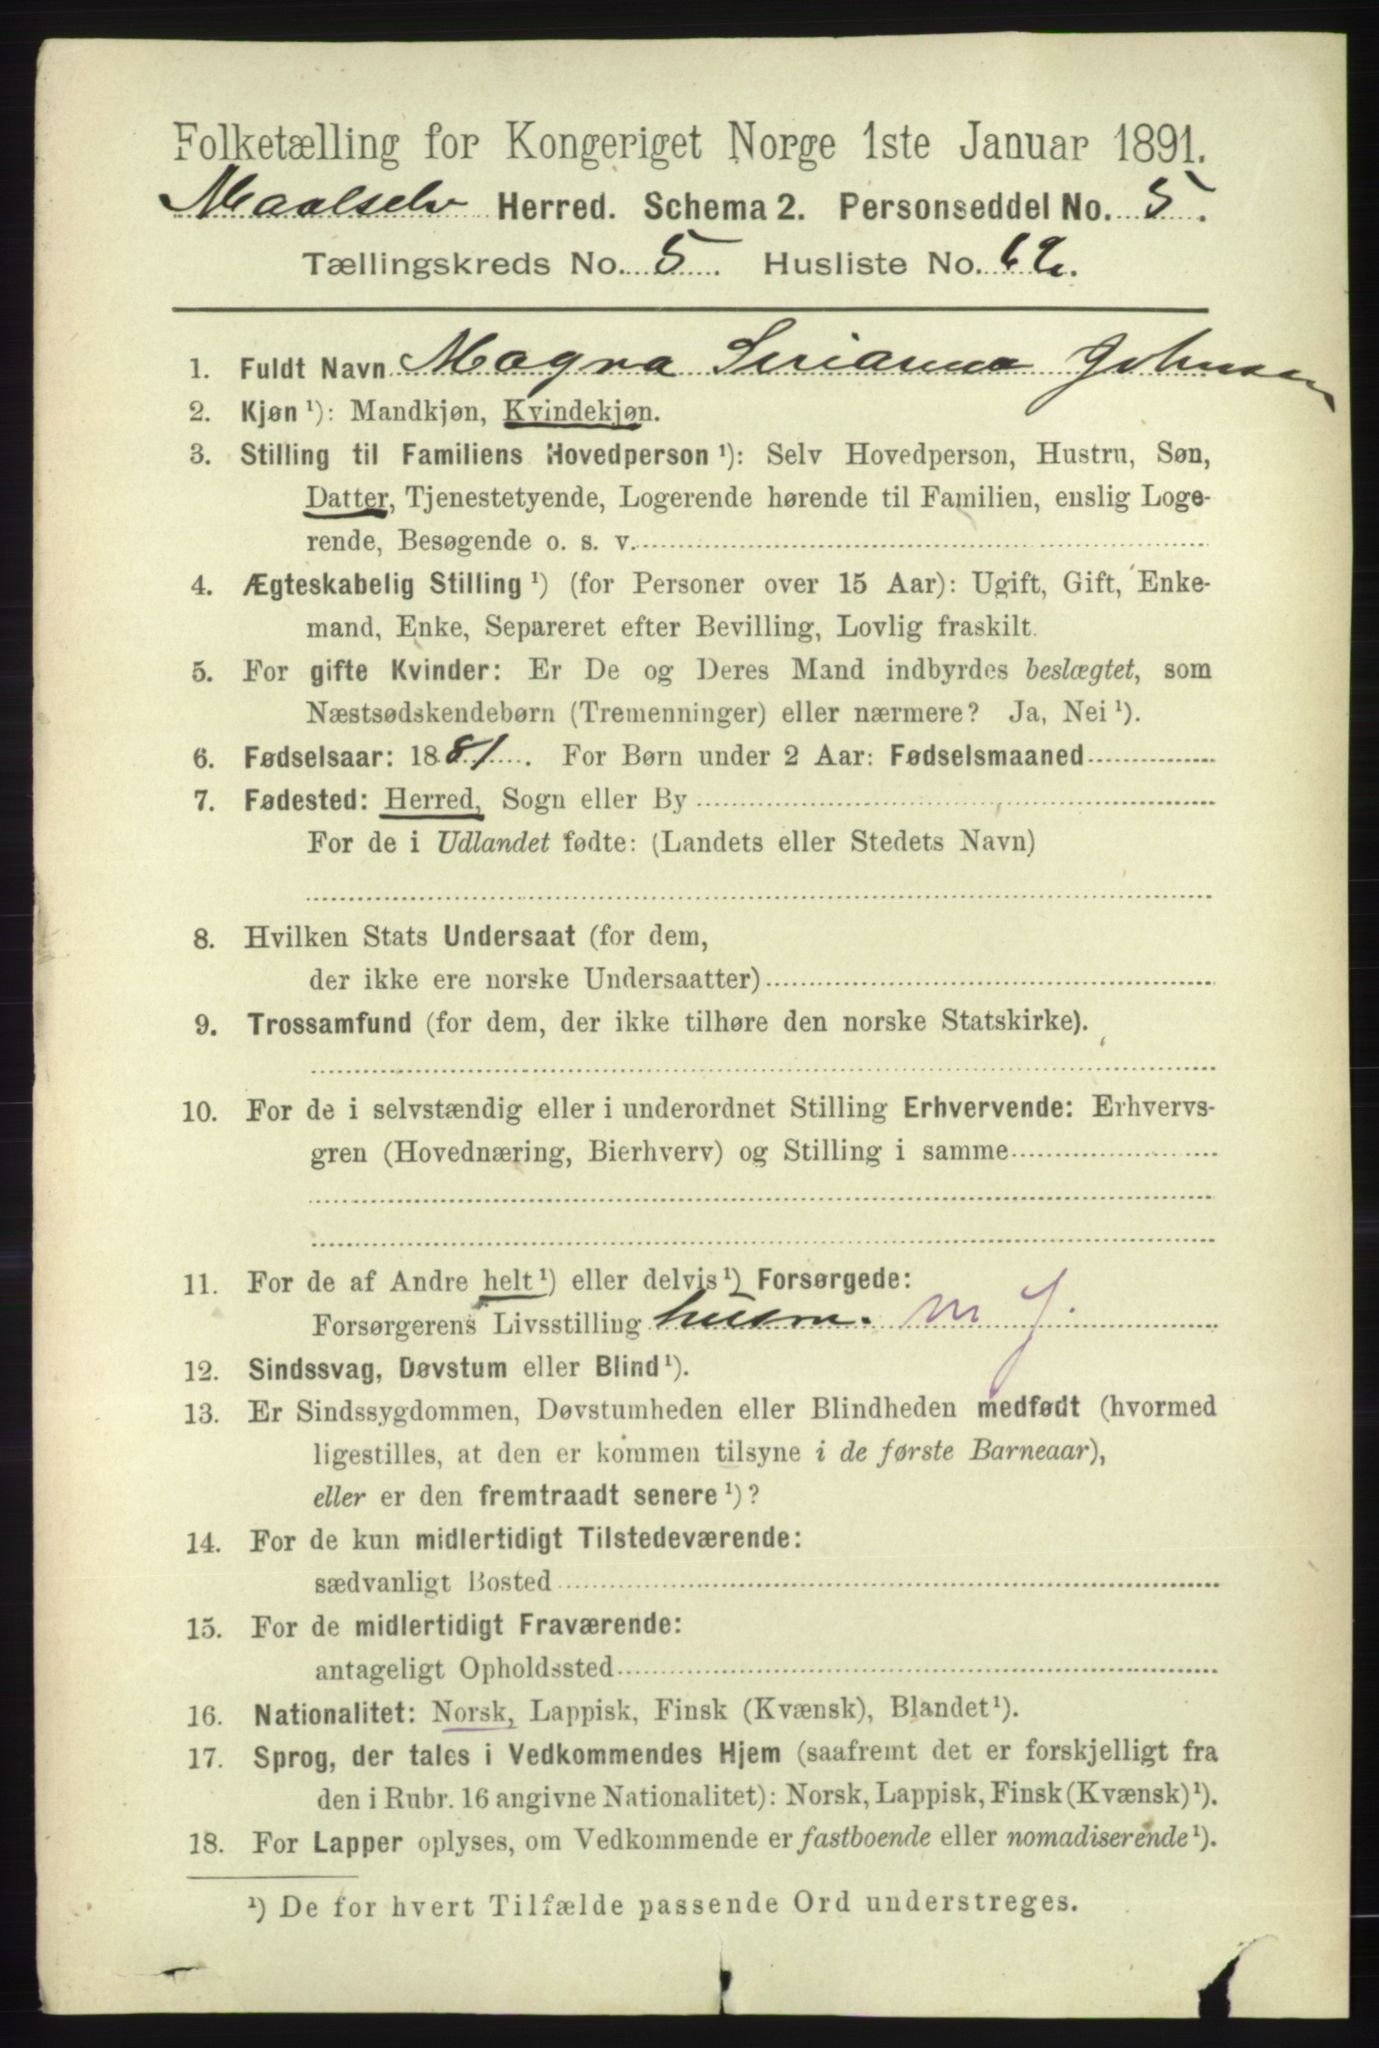 Folketælling for Kongeriget Norge 1ste Januar 1891.
Maalselv Herred. Schema 2. Personseddel No. 5.
Tællingskreds No. 5. Husliste No.
1. Fuldt Navn Magna Serianna Johnsen
2. Kjøn ¹): Mandkjøn, Kvindekjøn.
3. Stilling til Familiens Hovedperson ¹): Selv Hovedperson, Hustru, Søn,
Datter, Tjenestetyende, Logerende hørende til Familien, enslig Loge-
rende, Besøgende o. s. v.
4. Ægteskabelig Stilling ¹) (for Personer over 15 Aar): Ugift, Gift, Enke-
mand, Enke, Separeret efter Bevilling, Lovlig fraskilt.
5. For gifte Kvinder: Er De og Deres Mand indbyrdes beslægtet, som
Næstsødskendebørn (Tremenninger) eller nærmere? Ja, Nei ¹).
6. Fødselsaar: 1881. For Børn under 2 Aar: Fødselsmaaned
7. Fødested: Herred, Sogn eller By
For de i Udlandet fødte: (Landets eller Stedets Navn)
8. Hvilken Stats Undersaat (for dem,
der ikke ere norske Undersaatter)
9. Trossamfund (for dem, der ikke tilhøre den norske Statskirke).
10. For de i selvstændig eller i underordnet Stilling Erhvervende: Erhvervs-
gren (Hovednæring, Bierhverv) og Stilling i samme
11. For de af Andre helt ¹) eller delvis ¹) Forsørgede:
Forsørgerens Livsstilling husm. m J.
12. Sindssvag, Døvstum eller Blind ¹).
13. Er Sindssygdommen, Døvstumheden eller Blindheden medfødt (hvormed
ligestilles, at den er kommen tilsyne i de første Barneaar),
eller er den fremtraadt senere ¹)?
14. For de kun midlertidigt Tilstedeværende:
sædvanligt Bosted
15. For de midlertidigt Fraværende:
antageligt Opholdssted
16. Nationalitet: Norsk, Lappisk, Finsk (Kvænsk), Blandet ¹).
17. Sprog, der tales i Vedkommendes Hjem (saafremt det er forskjelligt fra
den i Rubr. 16 angivne Nationalitet): Norsk, Lappisk, Finsk (Kvænsk) ¹).
18. For Lapper oplyses, om Vedkommende er fastboende eller nomadiserende ¹).
¹) De for hvert Tilfælde passende Ord understreges.